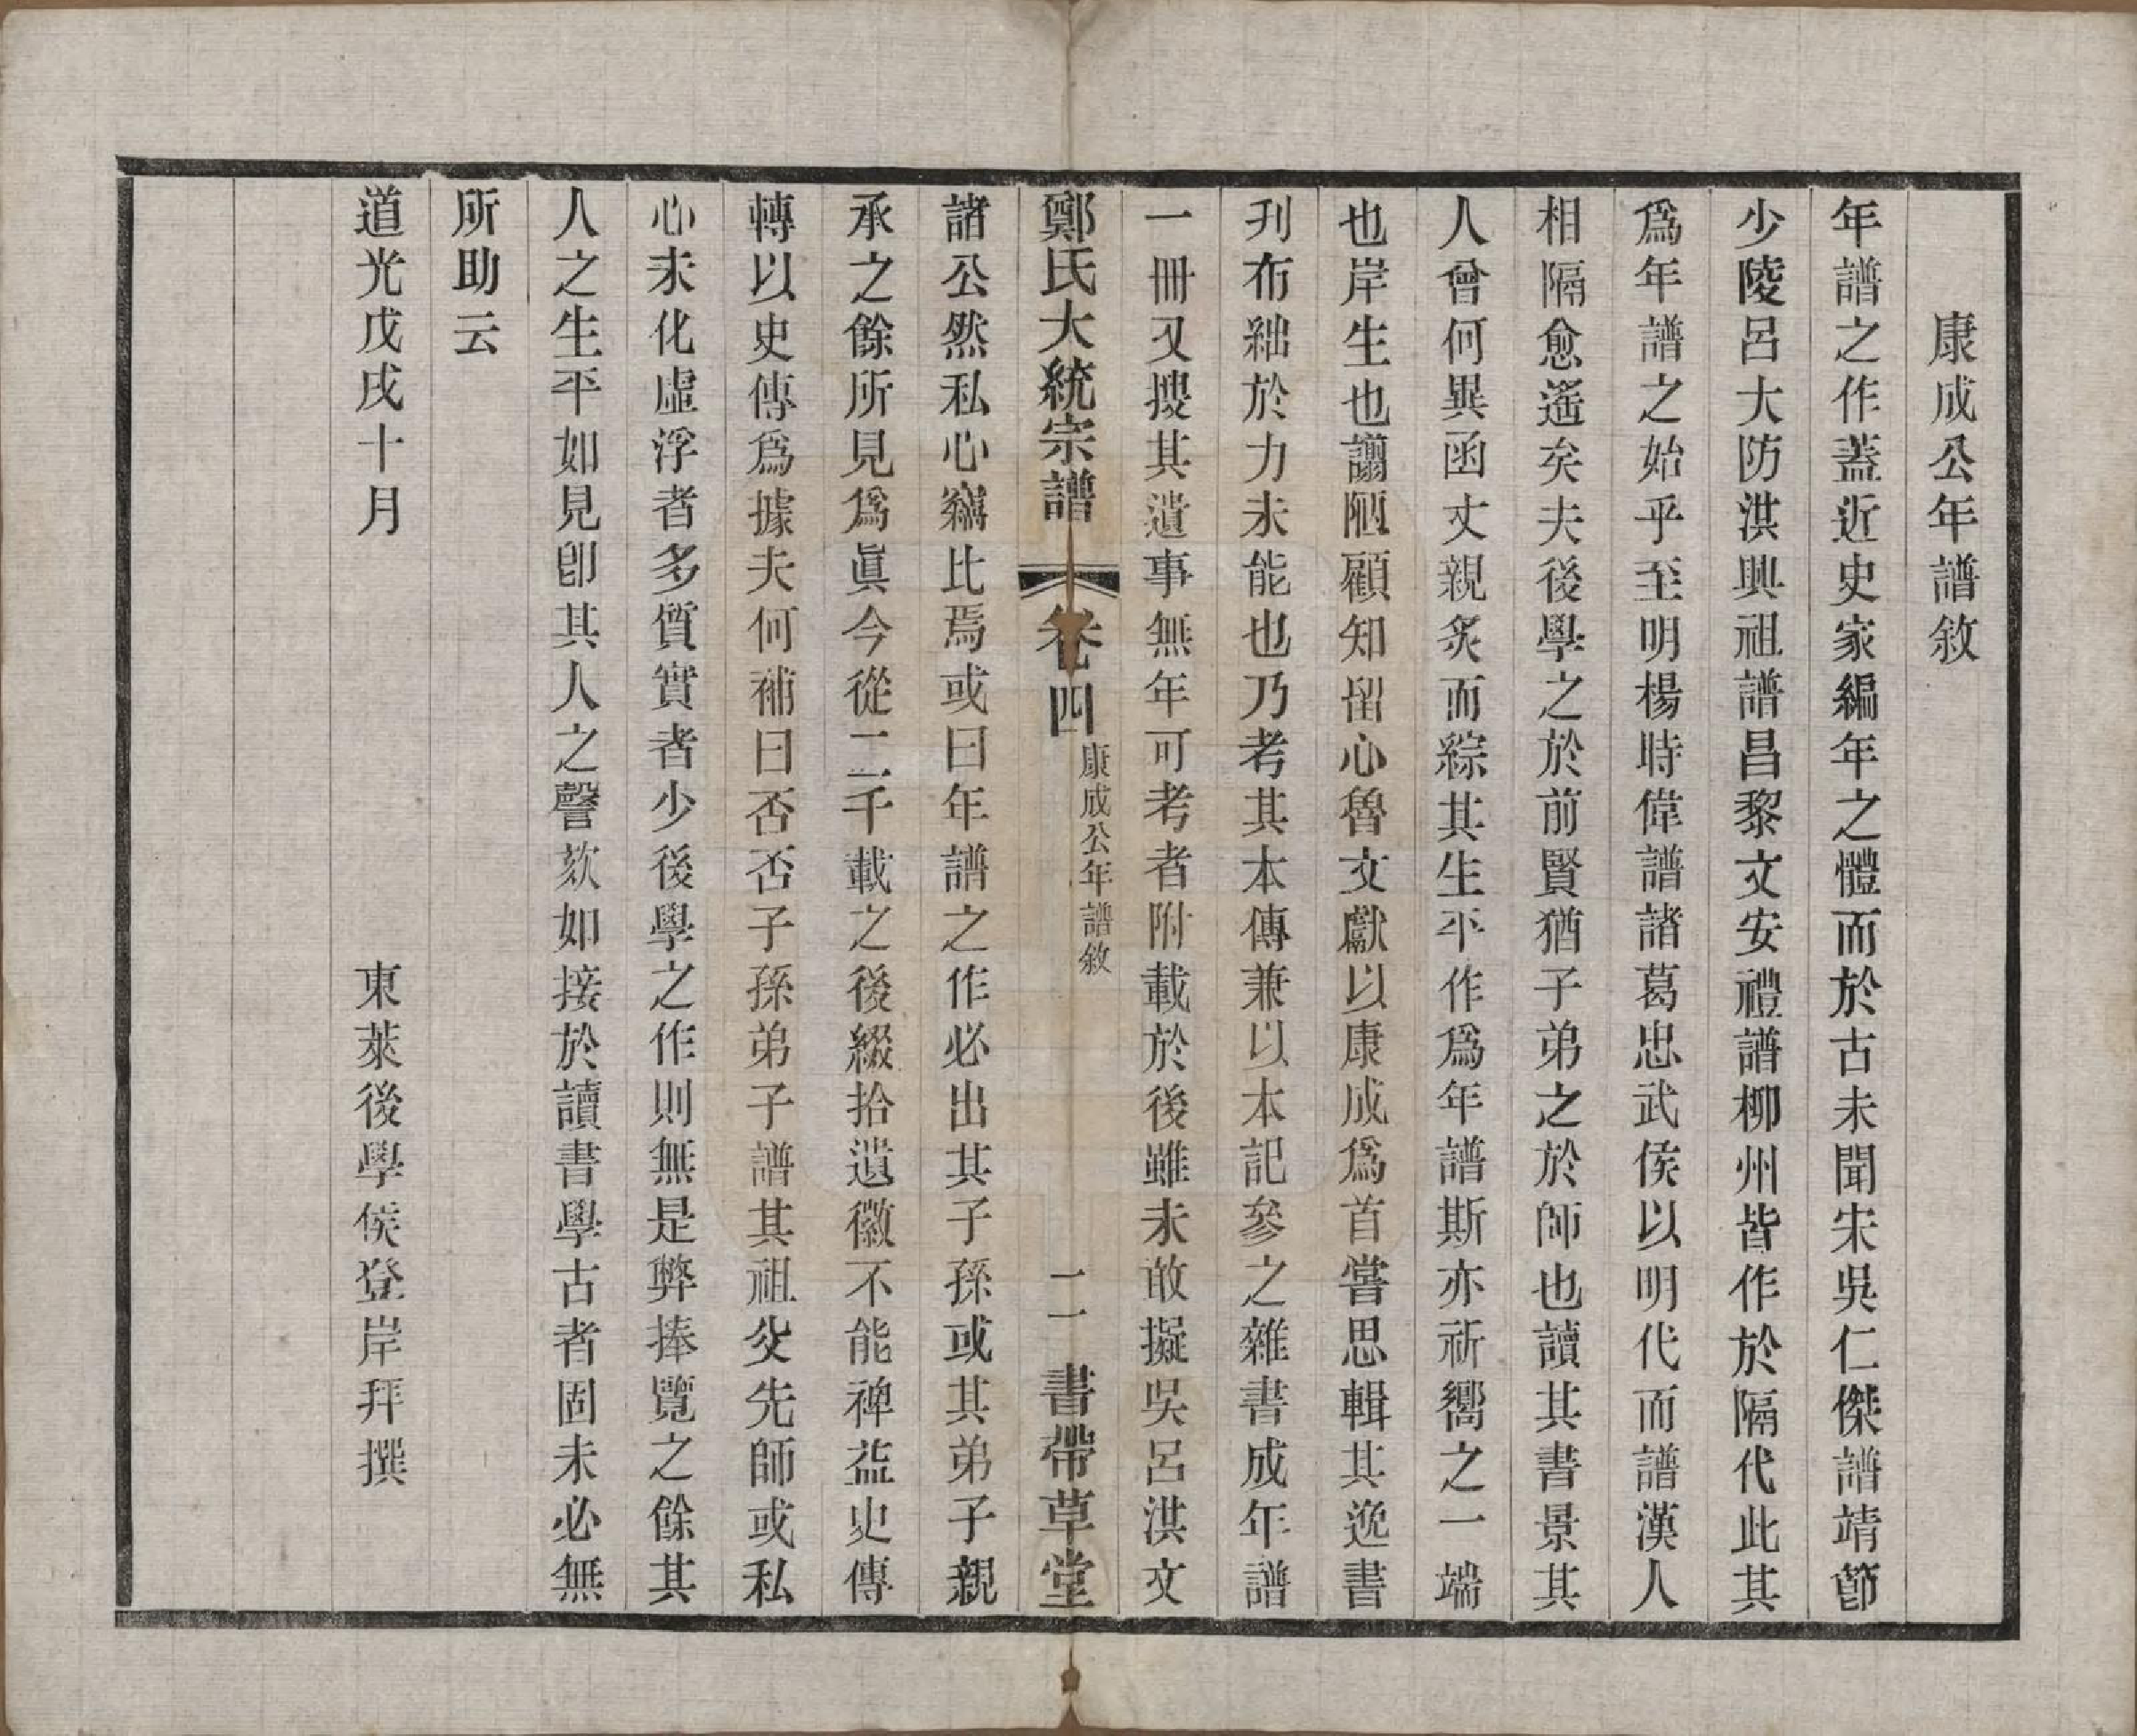 康成公年譜敘
年譜之作蓋近史家編年之體而於古未聞宋吳仁傑譜靖節
少陵呂大防洪興祖譜昌黎文安禮譜柳州皆作於隔代此其
爲年譜之始乎至明楊時偉譜諸葛忠武侯以明代而譜漢人
相隔愈遙矣夫後學之於前賢猶子弟之於師也讀其書景其
人曾何異函丈親炙而綜其生平作爲年譜斯亦祈嚮之一端
也岸生也譾陋顧知留心魯文獻以康成爲首嘗思輯其逸書
刋布絀於力未能也乃考其本傳兼以本記參之雜書成年譜
一冊又搜其遺事無年可考者附載於後雖未敢擬吳呂洪文
鄭氏大統宗譜 卷四 康成公年譜敘 二 書帶草堂
諸公然私心竊比焉或曰年譜之作必出其子孫或其弟子親
承之餘所見爲眞今從二千載之後綴拾遺徽不能裨益史傳
轉以史傳爲據夫何補曰否否子孫弟子譜其祖父先師或私
心未化虛浮者多質實者少後學之作則無是弊捧覽之餘其
人之生平如見卽其人之謦欬如接於讀書學古者固未必無
所助云
道光戊戌十月 東萊後學侯登岸拜撰